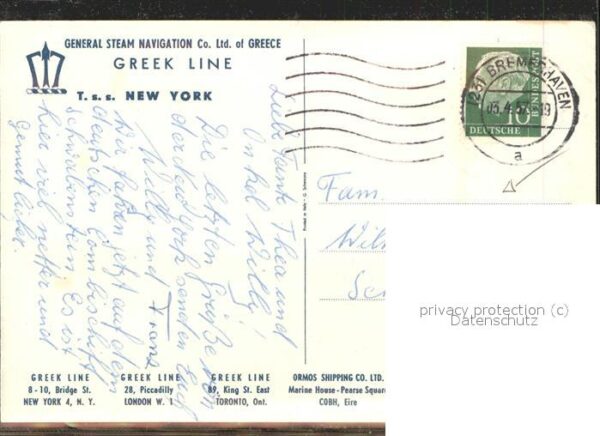 GENERAL STEAM NAVIGATION Co. Ltd. of GREECE
GREEK LINE
T. s. s. NEW YORK
(23) BREMERHAVEN
03.4.57
a
10
DEUTSCHE
BUNDESPOST
Liebe Tante Thea und
Onkel Willy!
Die letzten Grüße von
der New York senden Euch
Willy und Franz
Wir fahren jetzt auf dem
deutschen
Es ist
hier viel netter und
Fam.
Printed in Italy
privacy protection (c)
Datenschutz
GREEK LINE
8-10, Bridge St.
NEW YORK 4, N. Y.
GREEK LINE
28, Piccadilly
LONDON W. 1
GREEK LINE
89, King St. East
TORONTO, Ont.
ORMOS SHIPPING CO. LTD.
Marine House - Pearse Square
COBH, Eire